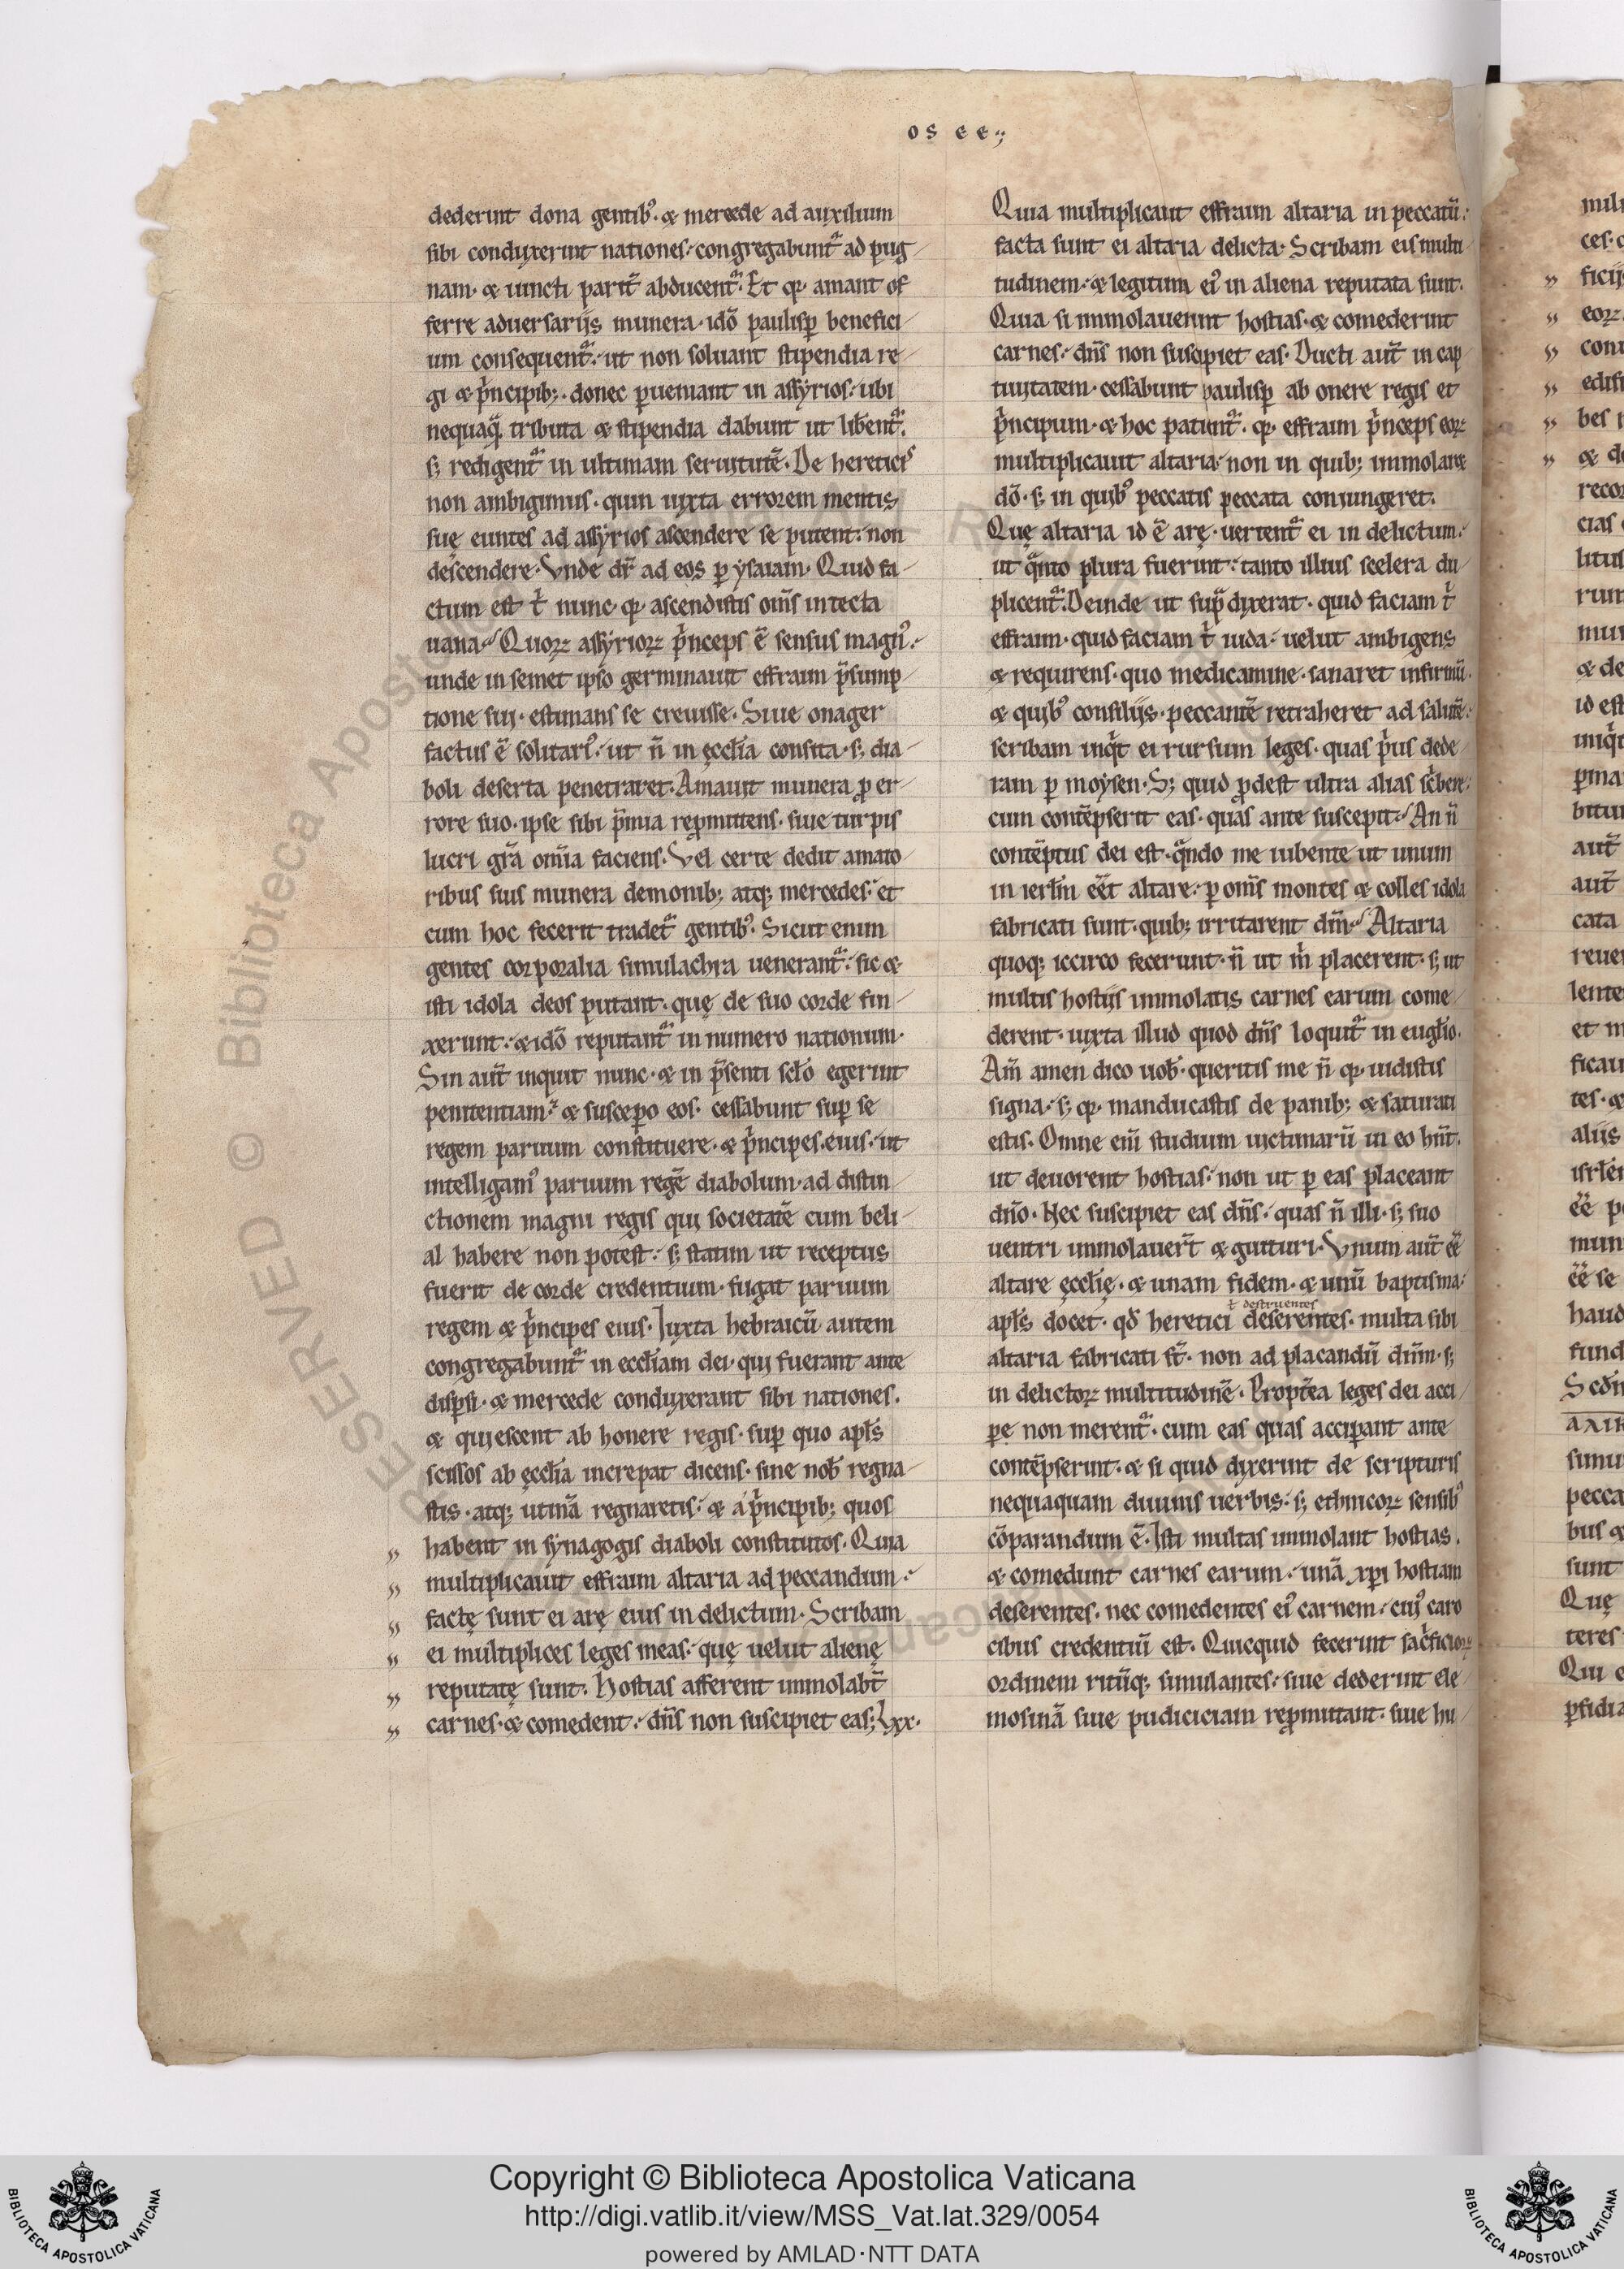 os ee;
dederint dona gentib᷒· & mercede ad auxilium
sibi conduxerint nationes: congregabunt᷑ ad pug
nam· & uincti parit̃ abducent᷑. Et qꝛ amant of
ferre aduersarijs munera· idõ paulisꝑ benefici
um consequent᷑: ut non soluant stipendia re
gi & p̾ncipib;· donec ꝑueniant in assyrios: ubi
nequaq̃ tributa & stipendia dabunt ut libent᷑.
s; redigent᷑ in ultimam seruitutẽ. De hereticis
non ambigimus· quin iuxta errorem mentis
suę euntes ad assyrios ascendere se putent: non
descendere. Vnde dr̃ ad eos ꝑ ysaiam· Quid fa
ctum est t̾ nunc· qꝛ ascendistis om̃s in tecta
uana? Quoꝝ assyrioꝝ p̾nceps ẽ sensus magn᷒:
unde in semet ipso germinauit effraim p̃sump
tione sui· estimans se creuisse. Siue onager
factus ẽ solitari᷒: ut ñ in ęcclĩa consita· s; dia
boli deserta penetraret. Amauit munera ꝓ er
rore suo· ipse sibi p̃mia reꝓmittens· siue turpis
lucri gr̃a om̃ia faciens. Vel certe dedit amato
ribus suis munera demonib; atq; mercedes: et
cum hoc fecerit tradet᷑ gentib᷒. Sicut enim
gentes corporalia simulachra uenerant᷑: sic &
isti idola deos putant· quę de suo corde fin
xerunt: & idõ reputant᷑ in numero nationum·
Sin aut̃ inquit nunc· & in p̃senti sc̃lo egerint
penitentiam: & suscepo eos· cessabunt suꝑ se
regem paruum constituere· & p̾ncipes eius: ut
intelligam᷒ paruum regẽ diabolum· ad distin
ctionem magni regis qui societatẽ cum beli
al habere non potest: s; statim ut receptus
fuerit de corde credentium· fugat paruum
regem & p̾ncipes eius. Iuxta hebraicũ autem
congregabunt᷑ in eccl̃iam dei· qui fuerant ante
disꝑsi· & mercede conduxerant sibi nationes.
& quiescent ab honere regis· suꝑ quo apl̃s
scissos ab ęccl̃ia increpat dicens· sine nob̃ regna
stis· atq; utinã regnaretis: & a p̾ncipib; quos
habent in synagogis diaboli constitutos. Quia
multiplicauit effraim altaria ad peccandum:
factę sunt ei arę eius in delictum. Scribam
ei multiplices leges meas: quę uelut alienę
reputatę sunt. Hostias afferent immolabt̃
carnes· & comedent: dñs non suscipiet eas; Lxx.
Quia multiplicauit effraim altaria in peccatũ:
facta sunt ei altaria delicta. Scribam eis multi
tudinem: & legitim ei᷒ in aliena reputata sunt.
Quia si immolauerint hostias· & comederint
carnes: dñs non suscipiet eas. Ducti aut̃ in cap
tiuitatem· cessabunt paulisꝑ ab onere regis et
p̾ncipum· & hoc patiunt᷑· qꝛ effraim p̾nceps eoꝝ
multiplicauit altaria: non in quib; immolaret
dõ· s; in quib᷒ peccatis peccata coniungeret.
Quę altaria id ẽ arę· uertent᷑ ei in delictum:
ut q̃nto plura fuerint: tanto illius scelera du
plicent᷑. Deinde ut sup̃ dixerat· quid faciam t̾
effraim· quid faciam t̾ iuda: uelut ambigens
& requirens· quo medicamine· sanaret infirmũ·
& quib᷒ consilijs· peccantẽ retraheret ad salutẽ:
scribam inq̾t ei rursum leges· quas p̾us dede
ram ꝑ moysen· S; quid ꝓdest ultra alias sc̾bere:
cum contẽpserit eas· quas ante suscepit? An ñ
contẽptus dei est· q̃ndo me iubente ut unum
in ierl̃m eẽt altare: ꝑ om̃s montes & colles idola
fabricati sunt· quib; irritarent dm̃? Altaria
quoq; iccirco fecerunt· ñ ut m̾ placerent· s; ut
multis hostijs immolatis carnes earum come
derent· iuxta illud quod dñs loquit᷑ in eugl̃io.
Am̃ amen dico uob̃· queritis me ñ qꝛ uidistis
signa: s; qꝛ manducastis de panib; & saturati
estis. Omne eni᷒ studium uictimarũ in eo hñt·
ut deuorent hostias: non ut ꝑ eas placeant
dño. Nec suscipiet eas dñs: quas ñ illi· s; suo
uentri immolauer̃t & gutturi. Vnum aut̃ eẽ
altare ęccl̃ię· & unam fidem· & unũ baptisma:
t̾ destruentes
apl̃s docet· qd̃ heretici deserentes· multa sibi
altaria fabricati st̃· non ad placandũ dñm· s;
in delictoꝝ multitudinẽ. Propt̃ea leges dei acci
ꝑe non merent᷑· cum eas quas acciperant ante
contẽpserint· & si quid dixerint de scripturis
nequaquam diuinis uerbis: s; ethnicoꝝ sensib᷒
cõparandum ẽ. Isti multas immolant hostias.
& comedunt carnes earum: unã xp̃i hostiam
deserentes· nec comedentes ei᷒ carnem: cui᷒ caro
cibus credentiũ est. Quicquid fecerint sac̾ficioꝝ
ordinem ritũq; simulantes: siue dederint ele
mosinã siue pudiciciam reꝓmittant· siue hu